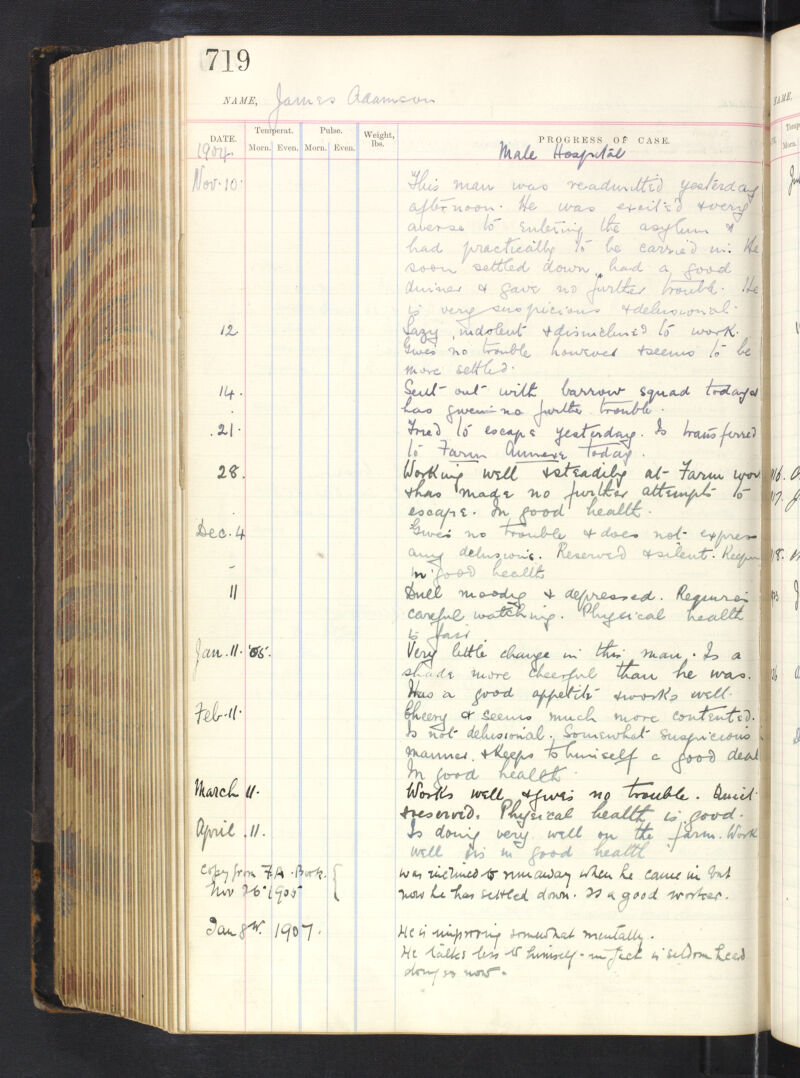 719
NAME, James Adamson
DATE. Temperat. Pulse. Weight, lbs. PROGRESS OF CASE.
Morn. Even. Morn. Even.
1904. Male Hospital
Nov. 10. This man was readmitted yesterday
afternoon. He was excited & very
averse to entering the asylum &
had practically to be carried in. He
soon settled down, had a good
dinner & gave no further trouble. He
is very suspicious & delusional.
12 Lazy, indolent & disinclined to work.
Gives no trouble however & seems to be
more settled.
14. Sent out with barrow squad today &
has given no further trouble.
21. Tried to escape yesterday. Is transferred
to Farm Annexe today.
28. Working well & steadily at Farm wor
& has made no further attempts to
escape. In good health.
Dec. 4 Gives no trouble & does not express
any delusions. Reserved & silent. Keeps
in good health
11 Dull moody & depressed. Requires
careful watching. Physical health
is fair
Jan. 11. '05. Very little change in this man. Is a
shade more cheerful than he was.
Has a good appetite & works well.
Feb. 11. Cheery & seems much more contented.
Is not delusional. Somewhat suspicious
manner, & keeps to himself a good deal
In good health.
March 11. Works well & gives no trouble. Quiet
& reserved. Physical health is good.
April. 11. Is doing very well on the farm. Work
well & is in good health
Copy from F.A. Book. was inclined to run away when he came in but
Nov 26 1905 now he has settled down. Is a good worker.
Jan 8th. 1907. He is improving somewhat mentally.
He talks less to himself - in fact is seldom heard
doing so now.